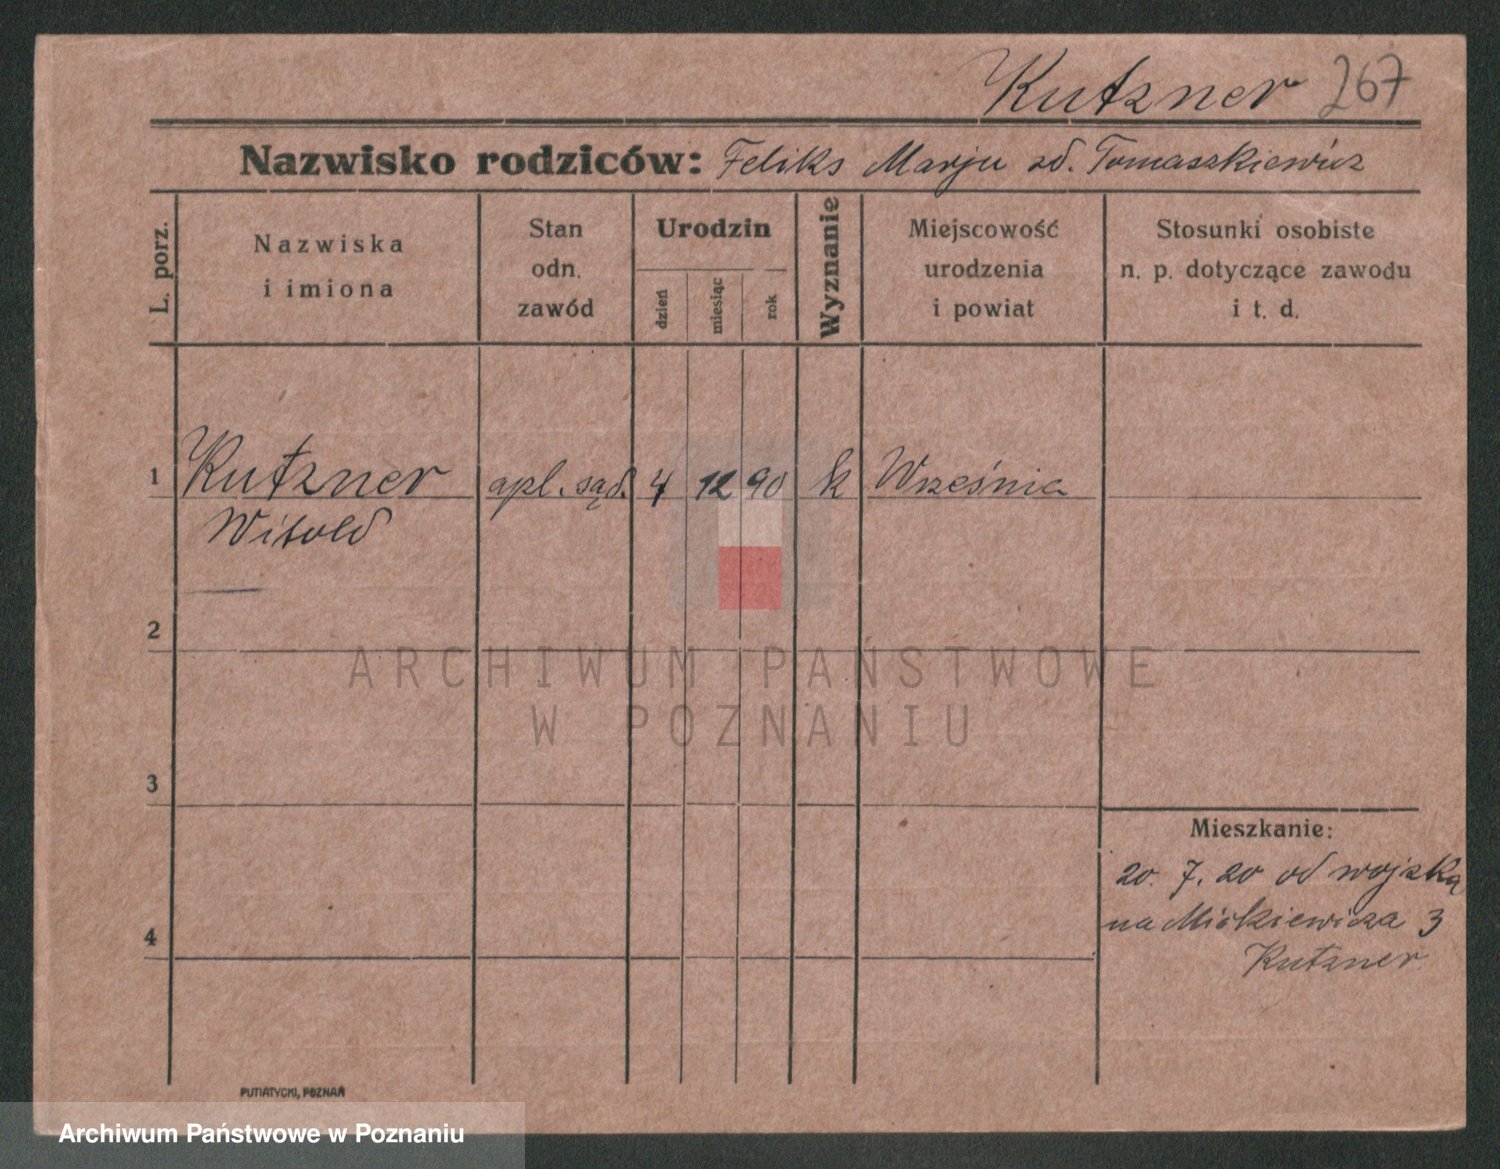 Kutzner 267
Nazwisko rodziców: Feliks Marju zd. Tomaszkiewicz
L. porz.
Nazwiska
i imiona
Stan
odn.
zawód
Urodzin
dzień
miesiąc
rok
Wyznanie
Miejscowość
urodzenia
i powiat
Stosunki osobiste
n. p. dotyczące zawodu
i t. d.
1 Kutzner apl. sąd. 4 12 90 k Września
Witold
2
ARCHIWUM PAŃSTWOWE
W POZNANIU
3
Mieszkanie:
20. 7. 20 od wojska
na Mickiewicza 3
4
Kutzner
PUTIATYCKI, POZNAŃ
Archiwum Państwowe w Poznaniu